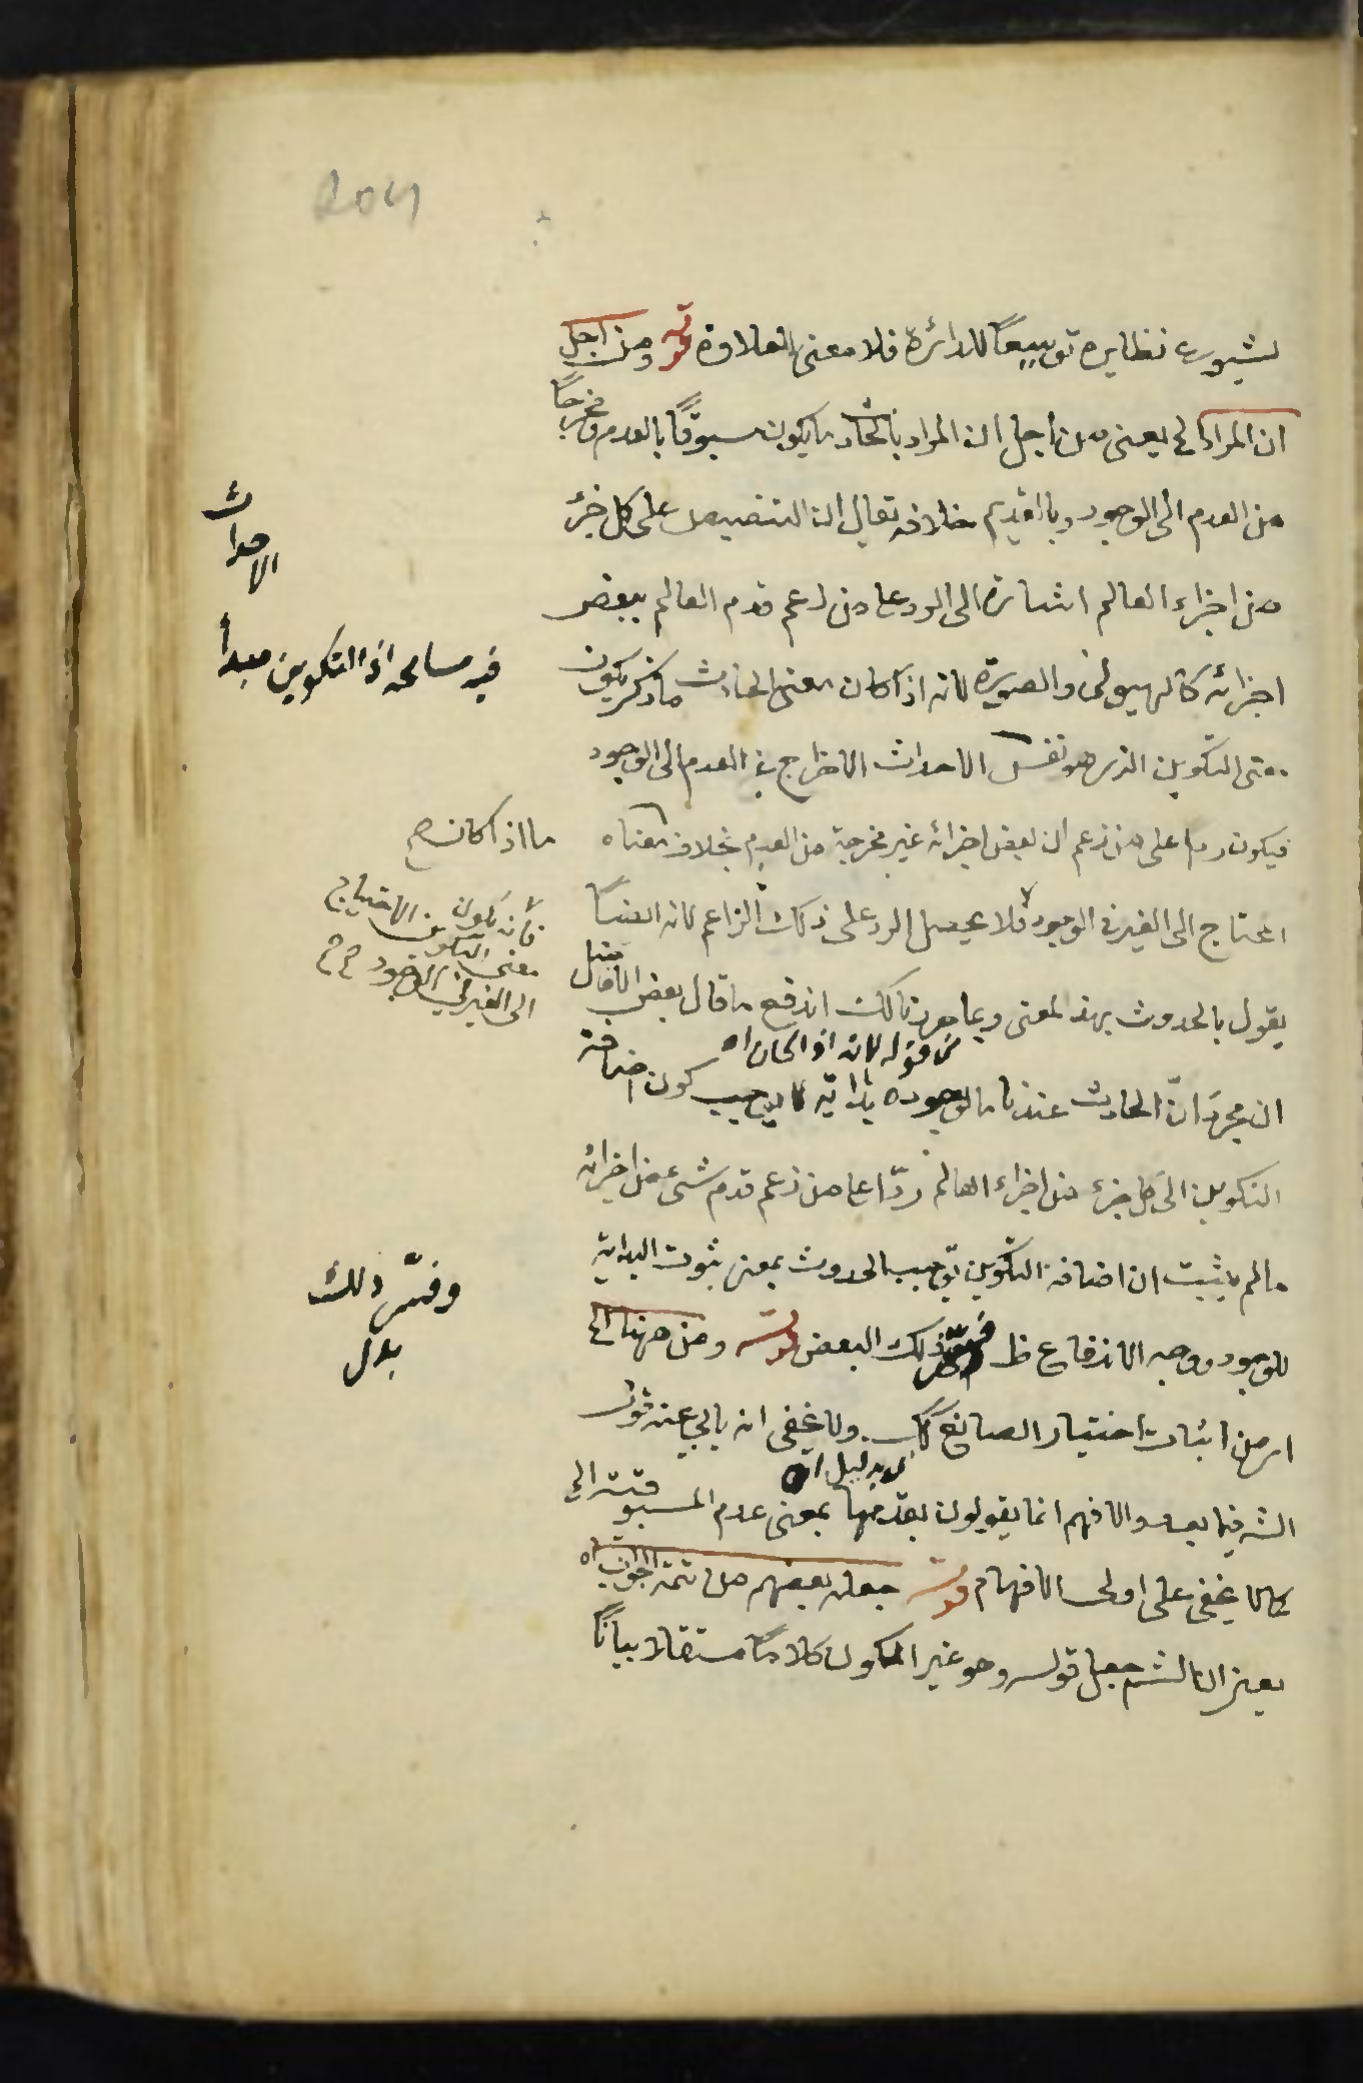 لشيوع نظايره توسيعًا للدائرة فلا معنى للعلاوة قوله ومن اجل
ان المراد الخ يعنى من اجل ان المراد بالحادث ما يكون مسبوقًا بالعدم ومخرجًا
من العدم الى الوجود وبالقديم خلافه يقال ان التنصيص على كل جزء
من اجزاء العالم اشارة الى الرد على من زعم قدم العالم ببعض
اجزائه كالهيولى والصورة لانه اذا كان معنى الحادث ما ذكر يكون
معنى التكوين الذى هو نفس الاحداث الاخراج من العدم الى الوجود
فيكون ردا على من زعم ان بعض اجزائه غير مخرجة من العدم بخلاف معناه
المحتاج الى الغير فى الوجود فلا يحصل الرد على ذلك الزاعم لانه ايضًا
يقول بالحدوث بهذا المعنى وبما حررنا لك اندفع ما قال بعض الافاضل
من قوله لانه اذا كان اه
ان مجرد انّ الحادث عندنا ما لوجوده بداية لا يوجب كون اضافة
التكوين الى كل جزء من اجزاء العالم ردّا على من زعم قدم شىء من اجزائه
ما لم يثبت ان اضافة التكوين توجب الحدوث بمعنى ثبوت البداية
للوجود ووجه الاندفاع ظ ذلك البعض قوله ومن ههنا الخ
اى من اثبات اختيار الصانع ولا يخفى انه يأبى عنه قول
بدليل ان
الشه فيما بعد والا فهم انما يقولون بقدمها بمعنى عدم المسبوقية الخ
كما لا يخفى على اولى الافهام قوله جعله بعضهم من تتمة الجواب اه
يعنى ان الشه جعل قوله وهو غير المكون كلاما مستقلا بيانًا
فيه مسامحه اذ التكوين مبدأ
الاحداث
ما اذا كان صح
فانه يكون
معنى التكوين الاحتياج
الى الغير فى الوجود صح صح
وفسّر ذلك
بدل